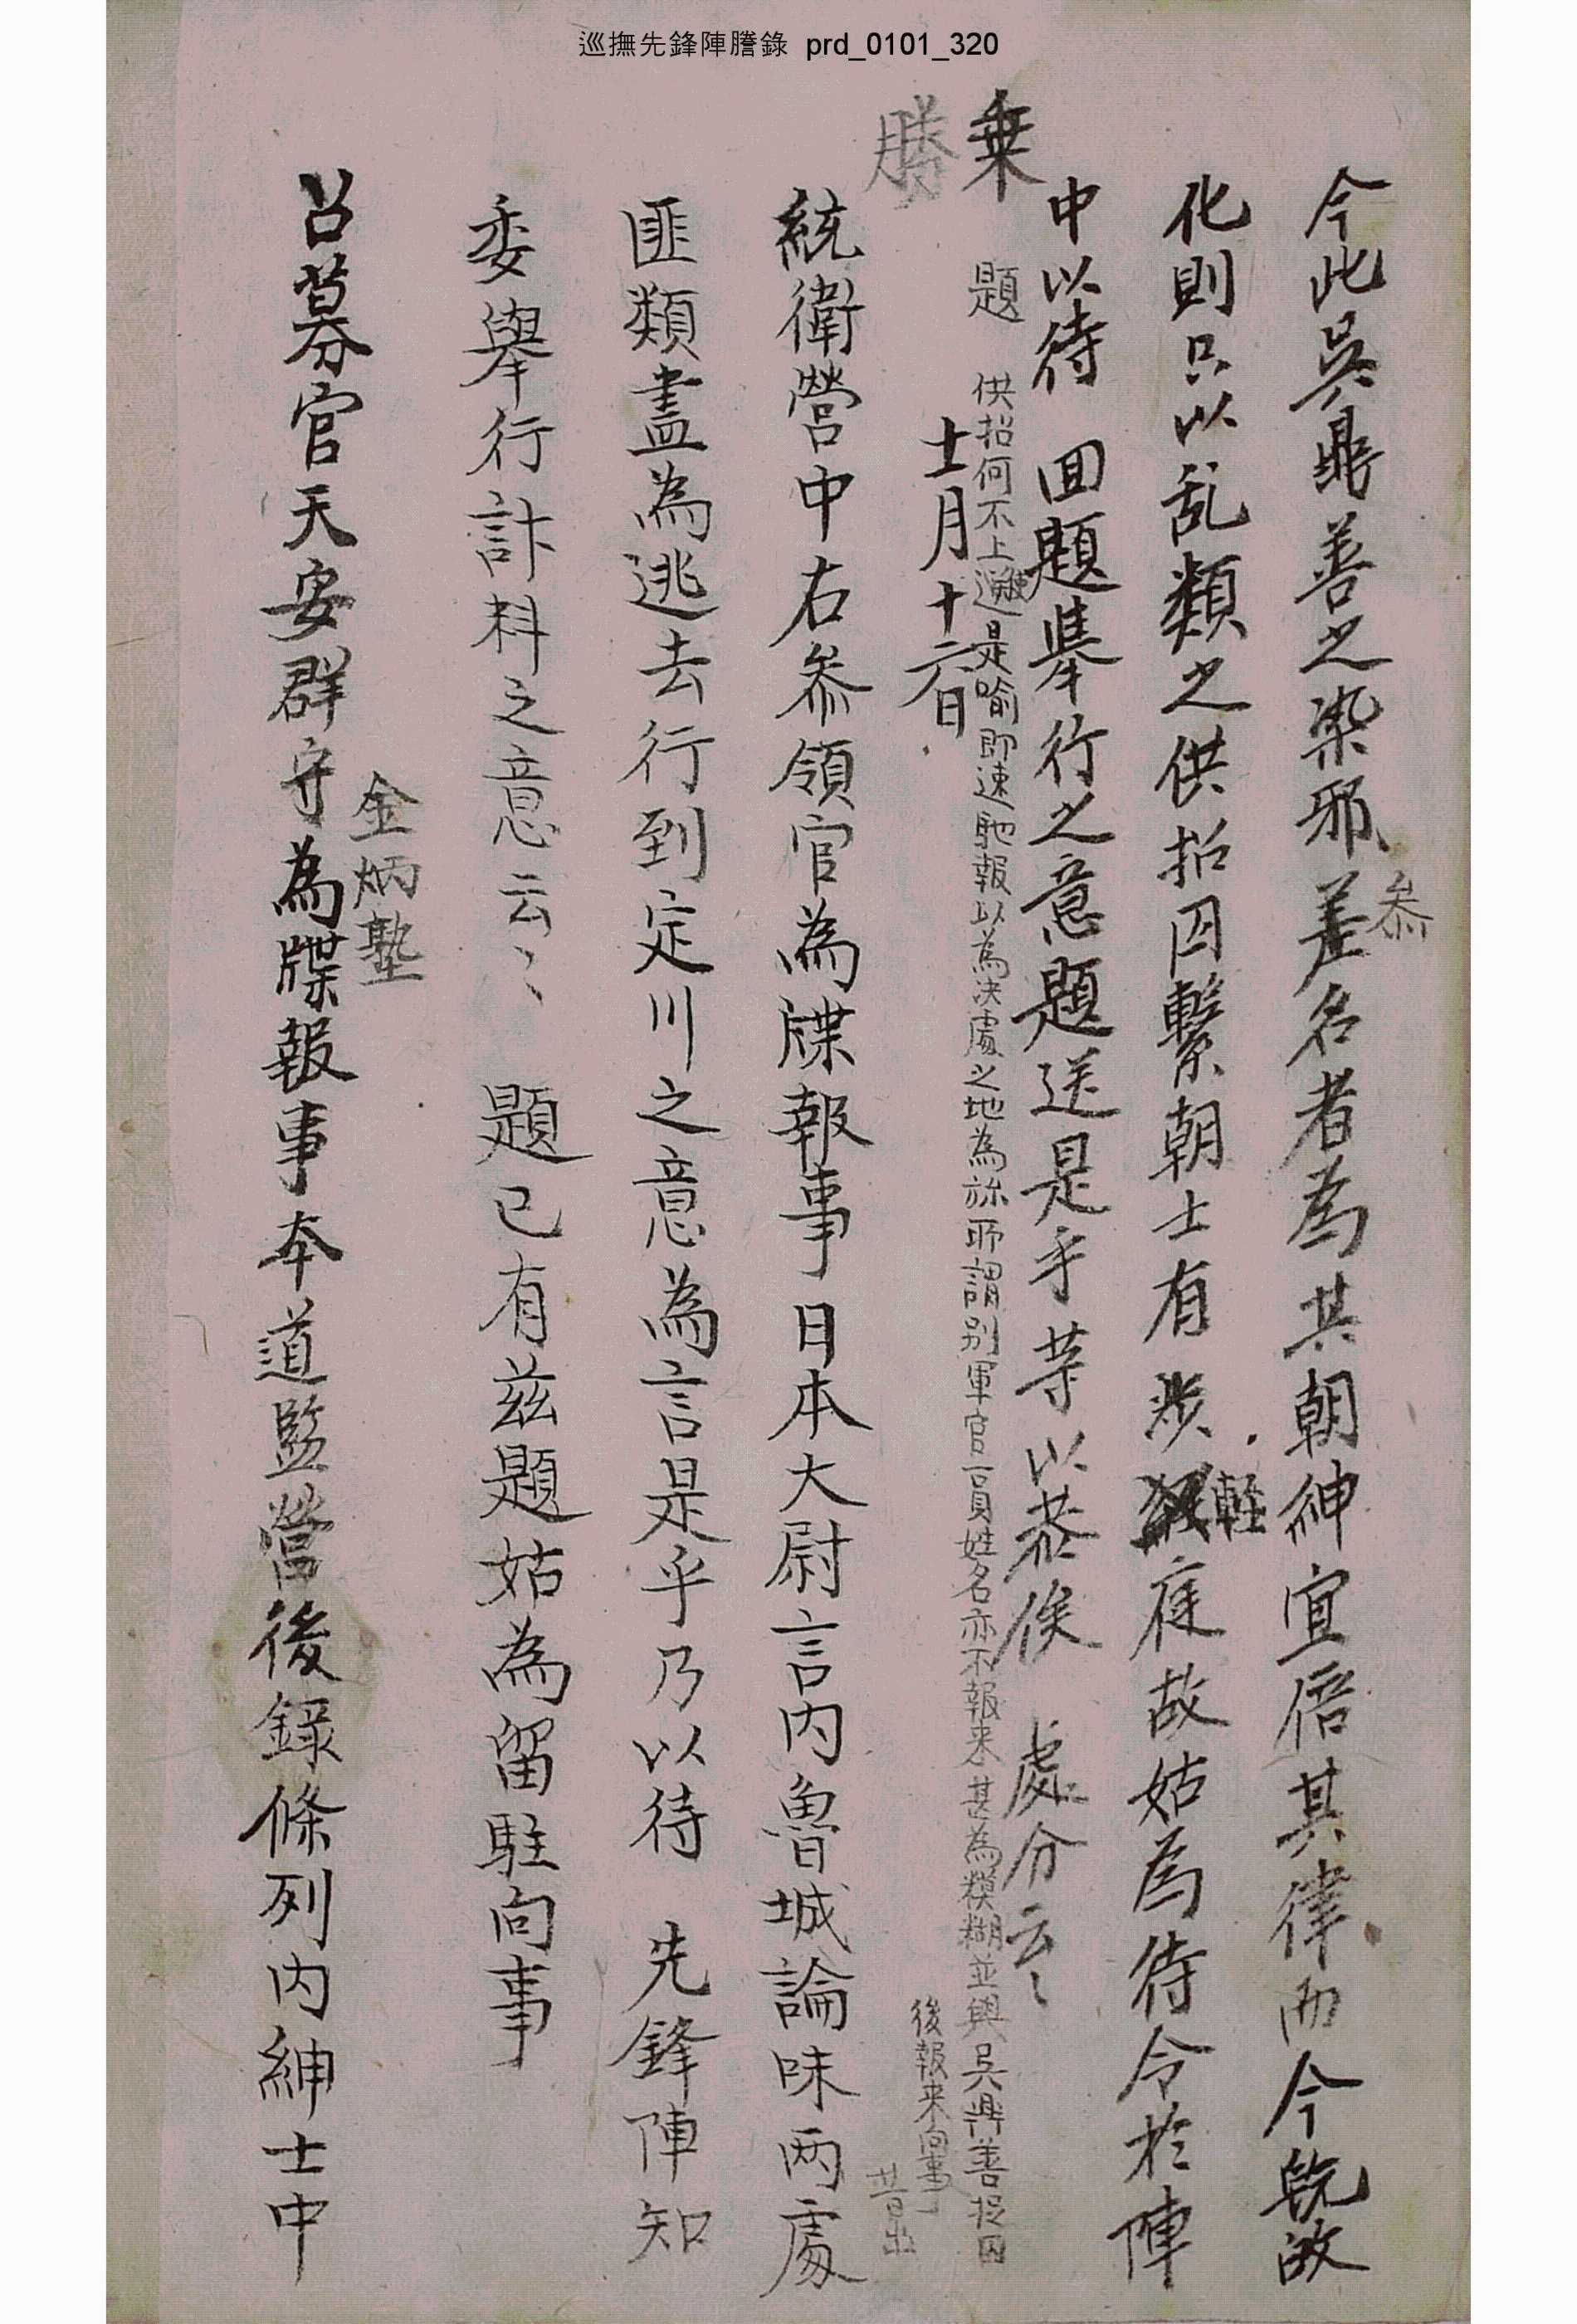 巡撫先鋒陣謄錄 prd_0101_320
今此吳鼎善之染邪差名者為其朝紳宜倍其律而今旣改
叅
化則只以乱類之供招囚繫朝士有涉輕
故姑為待令於陣
中以待 回題擧行之意題送是乎等以恭俟 處分云〻
乗
勝
題 供招何不上送是喩卽速馳報以為決處之地為旀所謂別軍官一員姓名亦不報来甚為糢糊並與吳鼎善捉囚
後報来向事
十一月十六日
統衛營中右叅領官為牒報事日本大尉言內魯城論味両處
匪類盡為逃去行到定川之意為言是乎乃以待 先鋒陣知
委擧行計料之意云〻 題已有茲題姑為留駐向事
召募官天安群守為牒報事本道監營後錄條列內紳士中
金炳塾